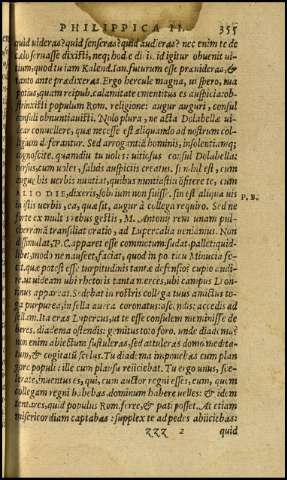 PHILIPPICA II. 355
quid uideras? quid senseras? quid audieras? nec enim te de
cælo seruasse dixisti, neq; hodie dicis. id igitur obuenit ui-
tium, quod tu iam Kalend. Ian. futurum esse prænideras, &
tanto ante prædixeras. Ergo hercule magna, ut spero, tua
potius, quàm reipub. calamitate ementitus es auspicia: ob-
strinxisti populum Rom. religione: augur auguri, consul
consuli obnuntiauisti. Nolo plura, ne acta Dolabellæ ui-
dear conuellere, quæ necesse est aliquando ad nostrum col-
legium deferantur. Sed arrogantiã hominis, insolentiamq;
cognoscite. quandiu tu uoles: uitiosus consul Dolabella:
rursus, cum uoles, saluis auspiciis creatus. si nihil est, cum
augur his uerbis nuntiat, quibus nuntiasti: cõfitere te, cum
ALIO DIE, dixeris, sobrium non fuisse. sin est aliqua uis
in istis uerbis, ea, quæ sit, augur à collega requiro. Sed ne P. B.
forte ex multis rebus gestis, M. Antonij rem unam pul-
cherrimã transiliat oratio, ad Lupercalia ueniamus. Non
dissimulat, P. C. apparet esse commotum: sudat, pallet: quid
libet, modo ne nauseet, faciat, quod in porticu Minucia fe-
cit. quæ potest esse turpitudinis tantæ defensio? cupio audi-
re, ut uideam ubi rhetoris tanta merces, ubi campus Leon-
tinus appareat. Sedebat in rostris collega tuus amictus to-
ga purpurea, in sella aurea coronatus: ascendis: accedis ad
sellam. Ita eras Lupercus, ut te esse consulem meminisse de
beres. diadema ostendis: gemitus toto foro. unde diadema?
non enim abiectum sustuleras, sed attuleras domo medita-
tum, & cogitatũ scelus. Tu diadema imponebas cum plan
gore populi: ille cum plausu reijciebat. Tu ergo unus, sce-
lerate, inuentus es, qui, cum auctor regni esses, eum, quem
collegam regni habebas, dominum habere uelles: & idem
tentares, quid populus Rom. ferre, & pati posset. At etiam
misericordiam captabas: supplex te ad pedes abijciebas:
zzz 2 quid